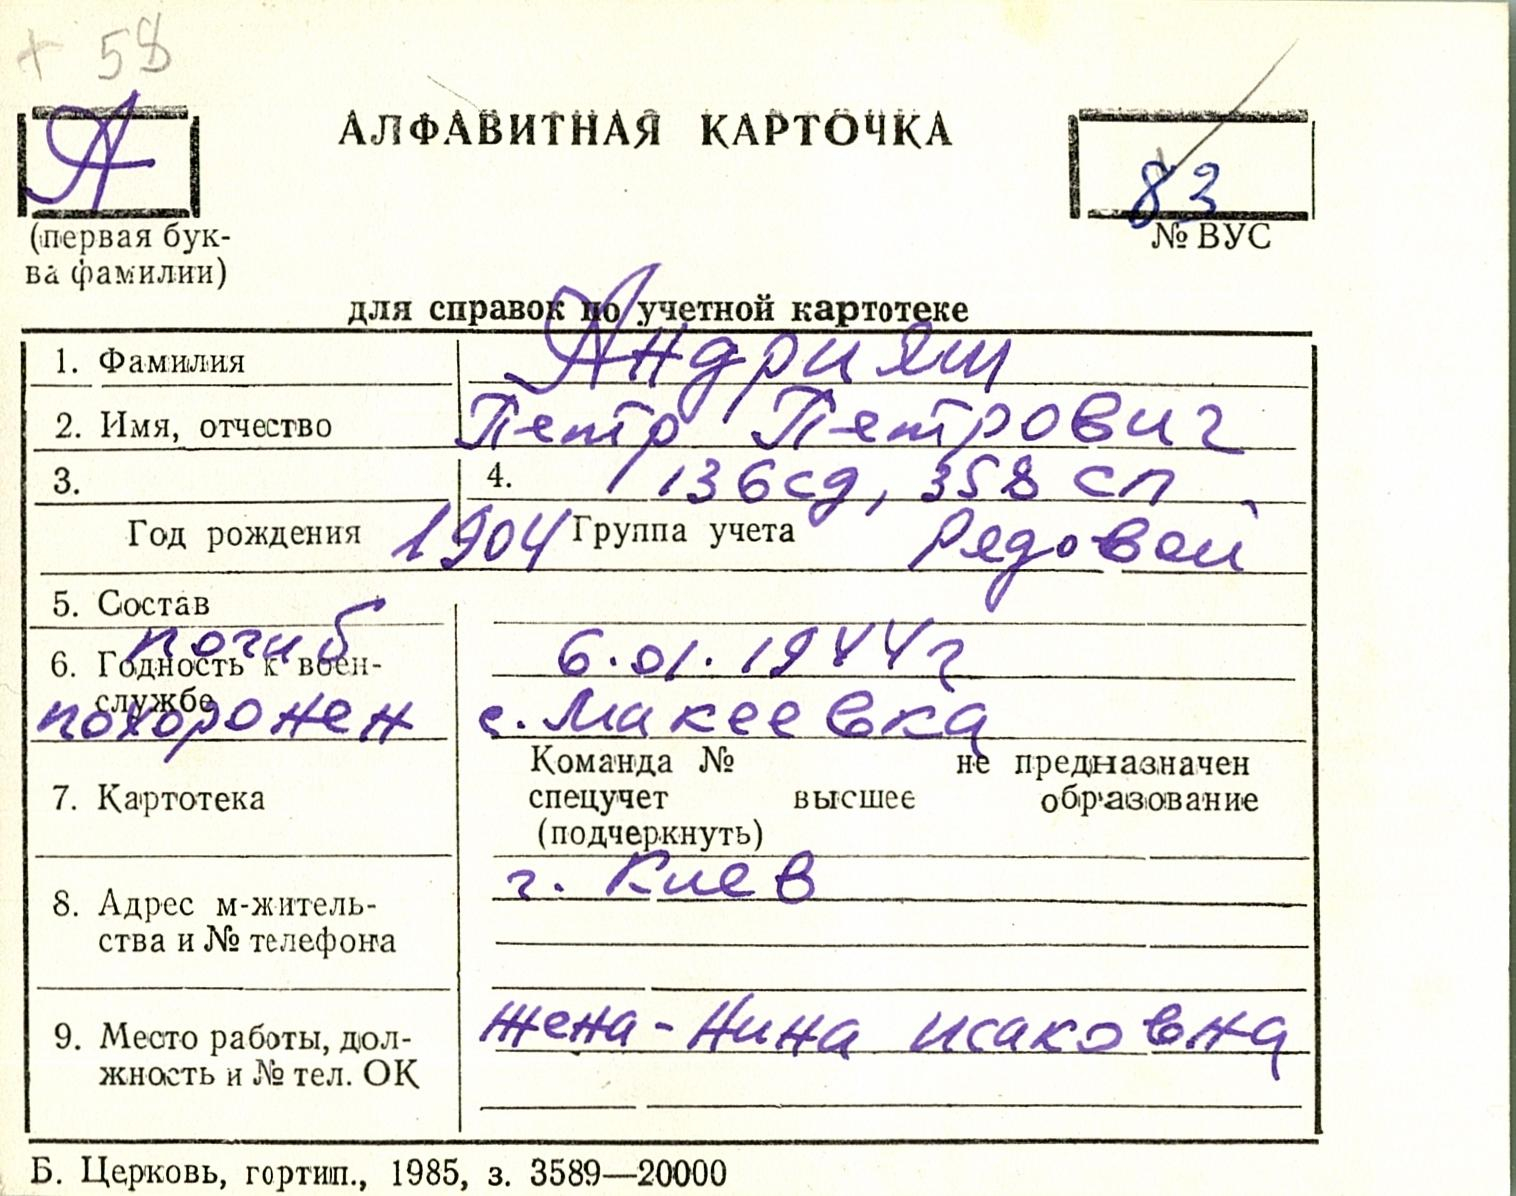 + 58
А
АЛФАВИТНАЯ КАРТОЧКА
83
(первая бук-
ва фамилии)
№ ВУС
для справок по учетной картотеке
1. Фамилия Андрияш
2. Имя, отчество Петр Петрович
3. 4. 136 сд, 358 сп
Год рождения 1904 Группа учета Рядовой
5. Состав
погиб 6.01.1944 г
6. Годность к воен-
службе
похоронен с. Макеевка
7. Картотека
Команда № не предназначен
спецучет высшее образование
(подчеркнуть)
8. Адрес м-житель-
ства и № телефона
г. Киев
9. Место работы, дол-
жность и № тел. ОК
жена - Нина Исаковна
Б. Церковь, гортип., 1985, з. 3589—20000